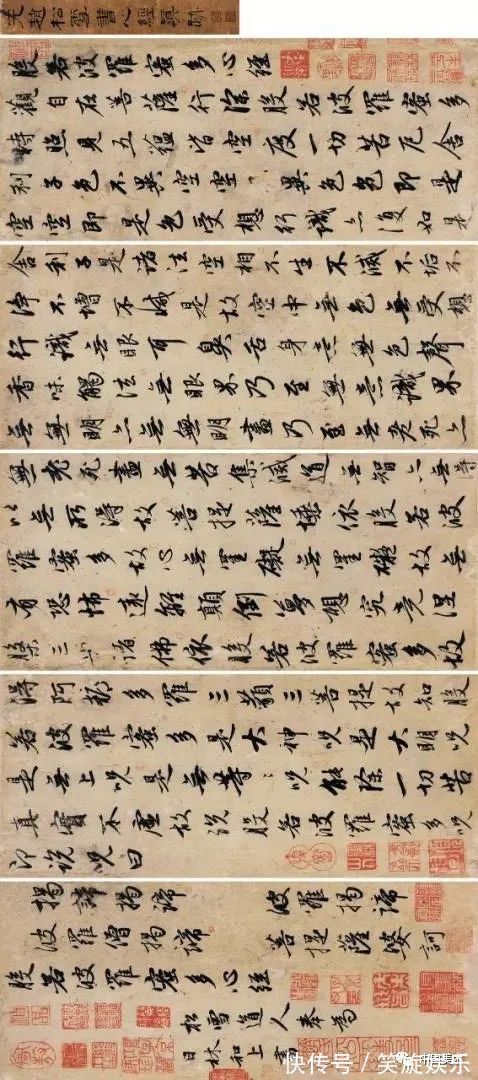 元趙松雪書心經真跡
般若波羅蜜多心經
觀自在菩薩行深般若波羅蜜多
時照見五蘊皆空度一切苦厄舍
利子色不異空空不異色色即是
空空即是色受想行識亦復如是
舍利子是諸法空相不生不滅不垢不
淨不增不減是故空中無色無受想
行識無眼耳鼻舌身意無色聲
香味觸法無眼界乃至無意識界
無無明亦無無明盡乃至無老死亦
無老死盡無苦集滅道無智亦無得
以無所得故菩提薩埵依般若波
羅蜜多故心無罣礙無罣礙故無
有恐怖遠離顛倒夢想究竟涅
槃三世諸佛依般若波羅蜜多故
得阿耨多羅三藐三菩提故知般
若波羅蜜多是大神咒是大明咒
是無上咒是無等:咒能除一切苦
真實不虛故說般若波羅蜜多咒
即說咒曰
揭諦揭諦 波羅揭諦
波羅僧揭諦 菩提薩婆訶
般若波羅蜜多心經
松雪道人奉為
日林和上書
快传号／笑旋娱乐